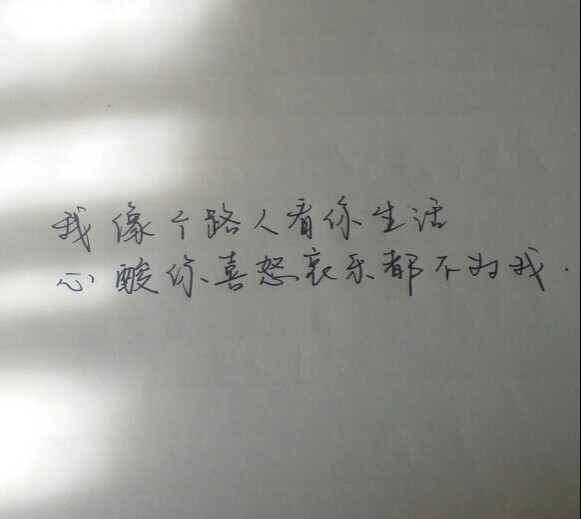 我像个路人看你生活
心酸你喜怒哀乐都不为我.